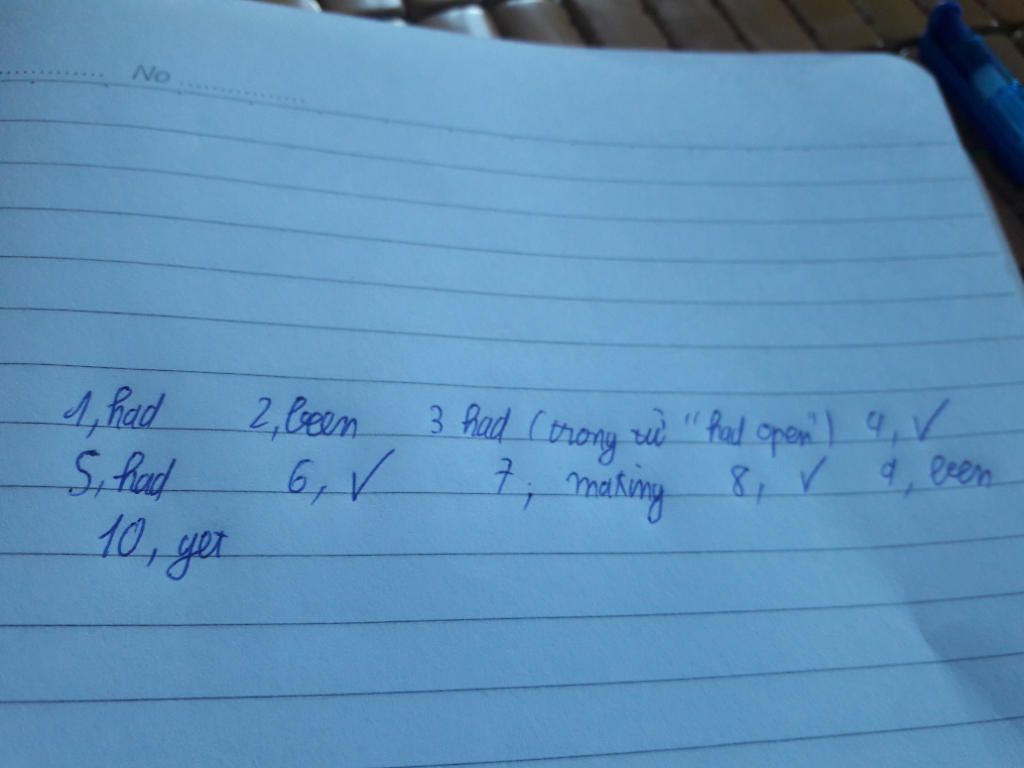 No
1, had 2, been 3 had (trong từ "had open") 4, ✓
5, had 6, ✓ 7, making 8, ✓ 9, been
10, yet